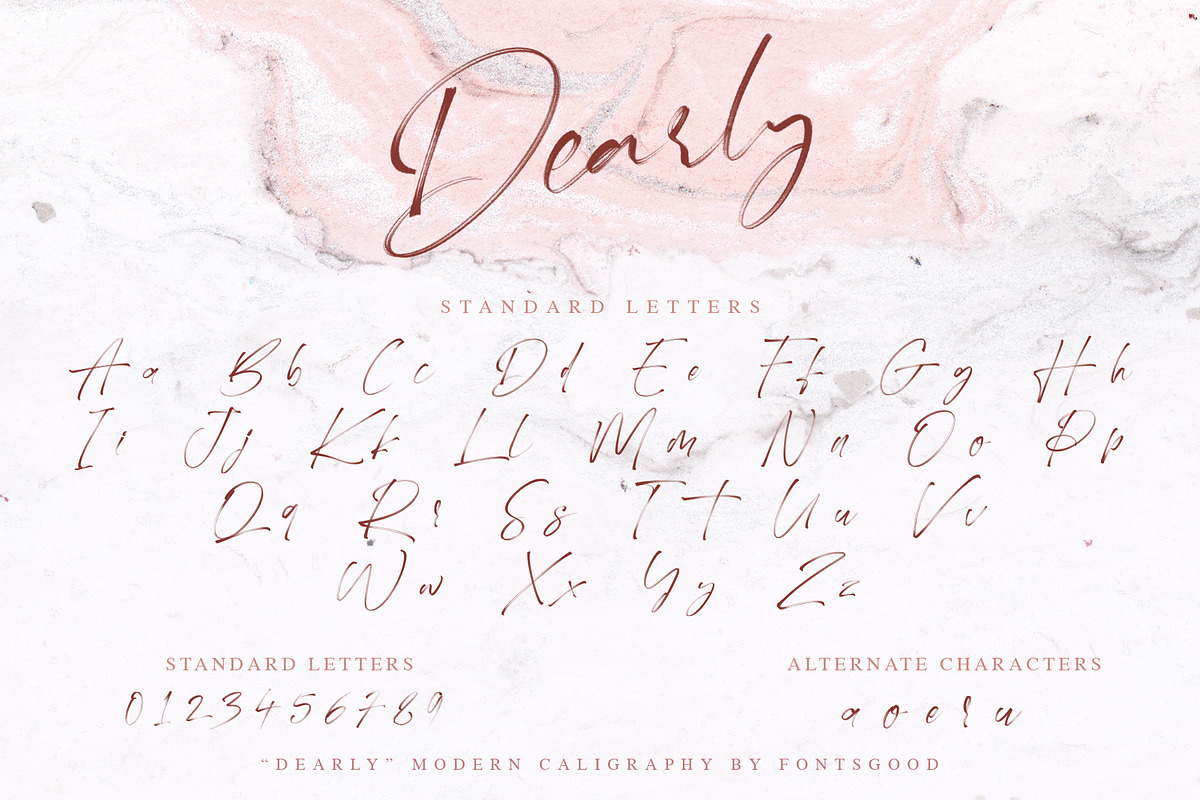 Dearly
STANDARD LETTERS
Aa Bb Cc Dd Ee Ff Gg Hh
Ii Jj Kk Ll Mm Nn Oo Pp
Qq Rr Ss Tt Uu Vv
Ww Xx Yy Zz
STANDARD LETTERS
0123456789
ALTERNATE CHARACTERS
a o e r u
“DEARLY” MODERN CALIGRAPHY BY FONTSGOOD